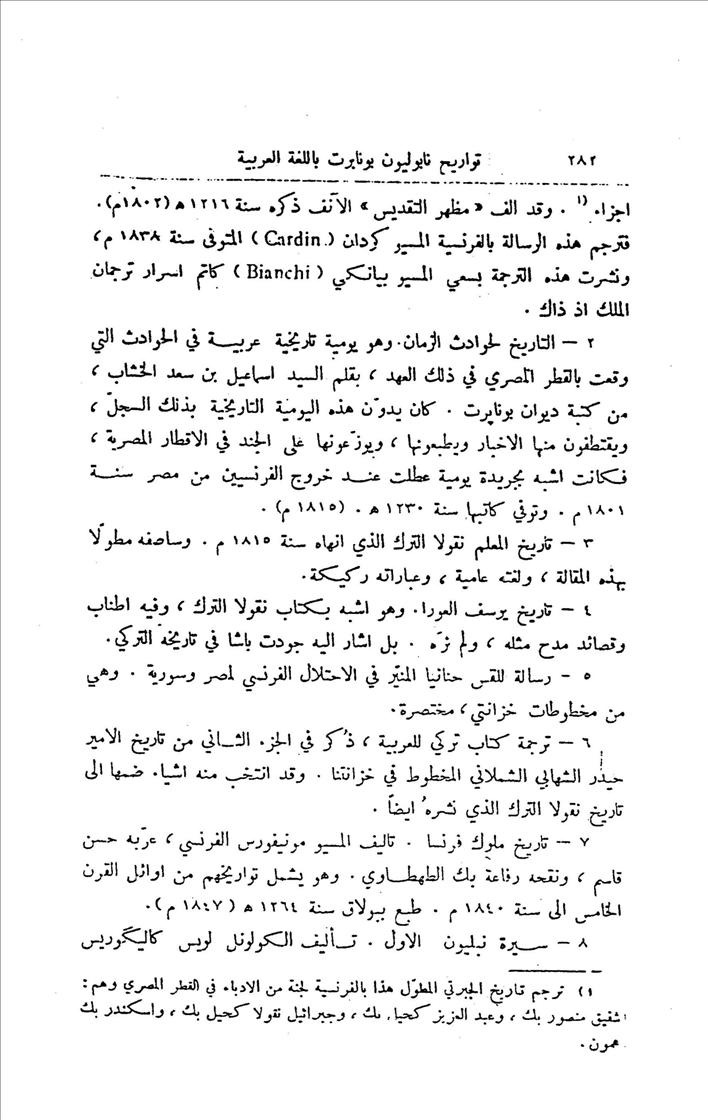 ٢٨٢ تواريخ نابوليون بونابرت باللغة العربية
اجزاء (١ . وقد الف «مظهر التقديس» الآنف ذكره سنة ١٢١٦ ه (١٨٠٢م).
فترجم هذه الرسالة بالفرنسية المسيو كردان (Cardin.) المتوفى سنة ١٨٣٨ م،
ونشرت هذه الترجمة بسعي المسيو بيانكي (Bianchi) كاتم اسرار ترجمان
الملك اذ ذاك .
٢ – التاريخ لحوادث الزمان. وهو يومية تاريخية عربية في الحوادث التي
وقعت بالقطر المصري في ذلك العهد ، بقلم السيد اسماعيل بن سعد الخشاب ،
من كتبة ديوان بونابرت . كان يدوّن هذه اليومية التاريخية بذلك السجلّ ،
ويقتطفون منها الاخبار ويطبعونها ، ويوزّعونها على الجند في الاقطار المصرية ،
فكانت اشبه بجريدة يومية عطلت عند خروج الفرنسيين من مصر سنة
١٨٠١ م . وتوفي كاتبها سنة ١٢٣٠ ه . (١٨١٥ م) .
٣ – تاريخ المعلم نقولا الترك الذي انهاه سنة ١٨١٥ م . وساصفه مطولًا
بهذه المقالة ، ولغته عامية ، وعباراته ركيكة.
٤ – تاريخ يوسف العورا. وهو اشبه بكتاب نقولا الترك ، وفيه اطناب
وقصائد مدح مثله ، ولم نرَه . بل اشار اليه جودت باشا في تاريخه التركي.
٥ – رسالة للقس حنانيا المنيّر في الاحتلال الفرنسي لمصر وسورية . وهي
من مخطوطات خزانتي ، مختصرة.
٦ – ترجمة كتاب تركي للعربية ، ذُكر في الجزء الثاني من تاريخ الامير
حيدر الشهابي الشملاني المخطوط في خزانتنا . وقد انتخب منه اشياء ضمها الى
تاريخ نقولا الترك الذي نشرهُ ايضاً .
٧ – تاريخ ملوك فرنسا . تاليف المسيو مونيفورس الفرنسي ، عرّبه حسن
قاسم ، ونقحه رفاعة بك الطهطاوي . وهو يشمل تواريخهم من اوائل القرن
الخامس الى سنة ١٨٤٠ م . طبع ببولاق سنة ١٢٦٤ ه (١٨٤٧ م).
٨ – سيرة نبليون الاول . تأليف الكولونل لويس كاليگوريس
١) ترجم تاريخ الجبرتي المطوّل هذا بالفرنسية لجنة من الادباء في القطر المصري وهم :
شفيق منصور بك ، وعبد العزيز كحيل بك ، وجبرائيل نقولا كحيل بك ، واسكندر بك
عمون .